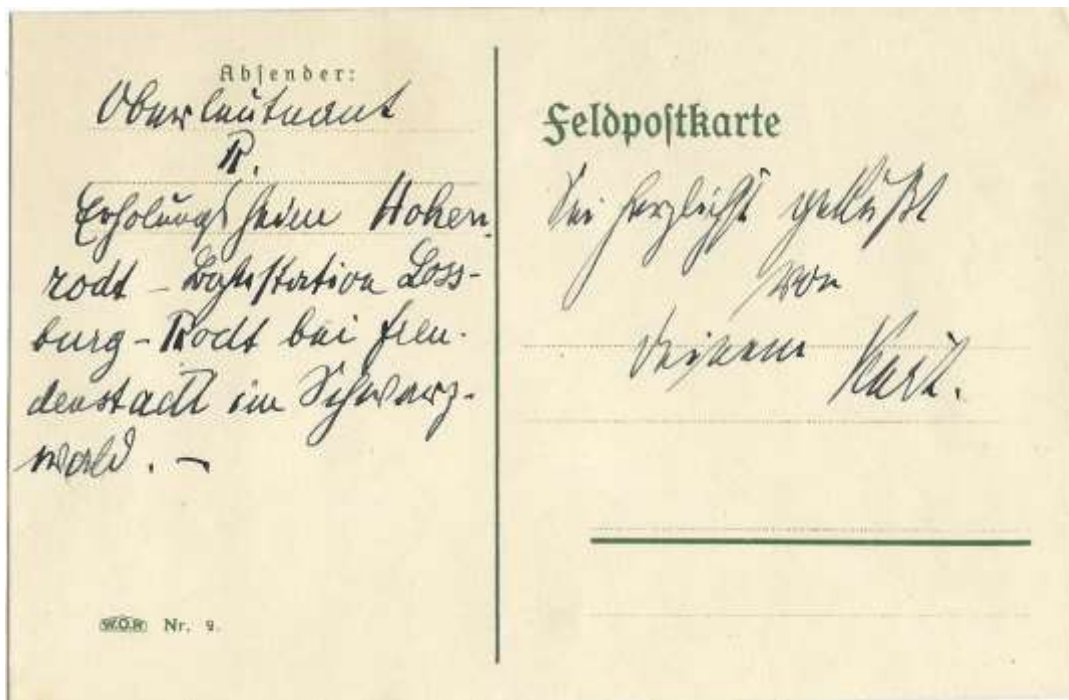 Absender:
Oberleutnant
R.
Erholungsheim Hohen-
rodt - Bahnstation Loss-
burg-Rodt bei Freu-
denstadt im Schwarz-
wald. -
W.O.R Nr. 9.
Feldpostkarte
Sei herzlichst geküßt
von
Deinem Karl.